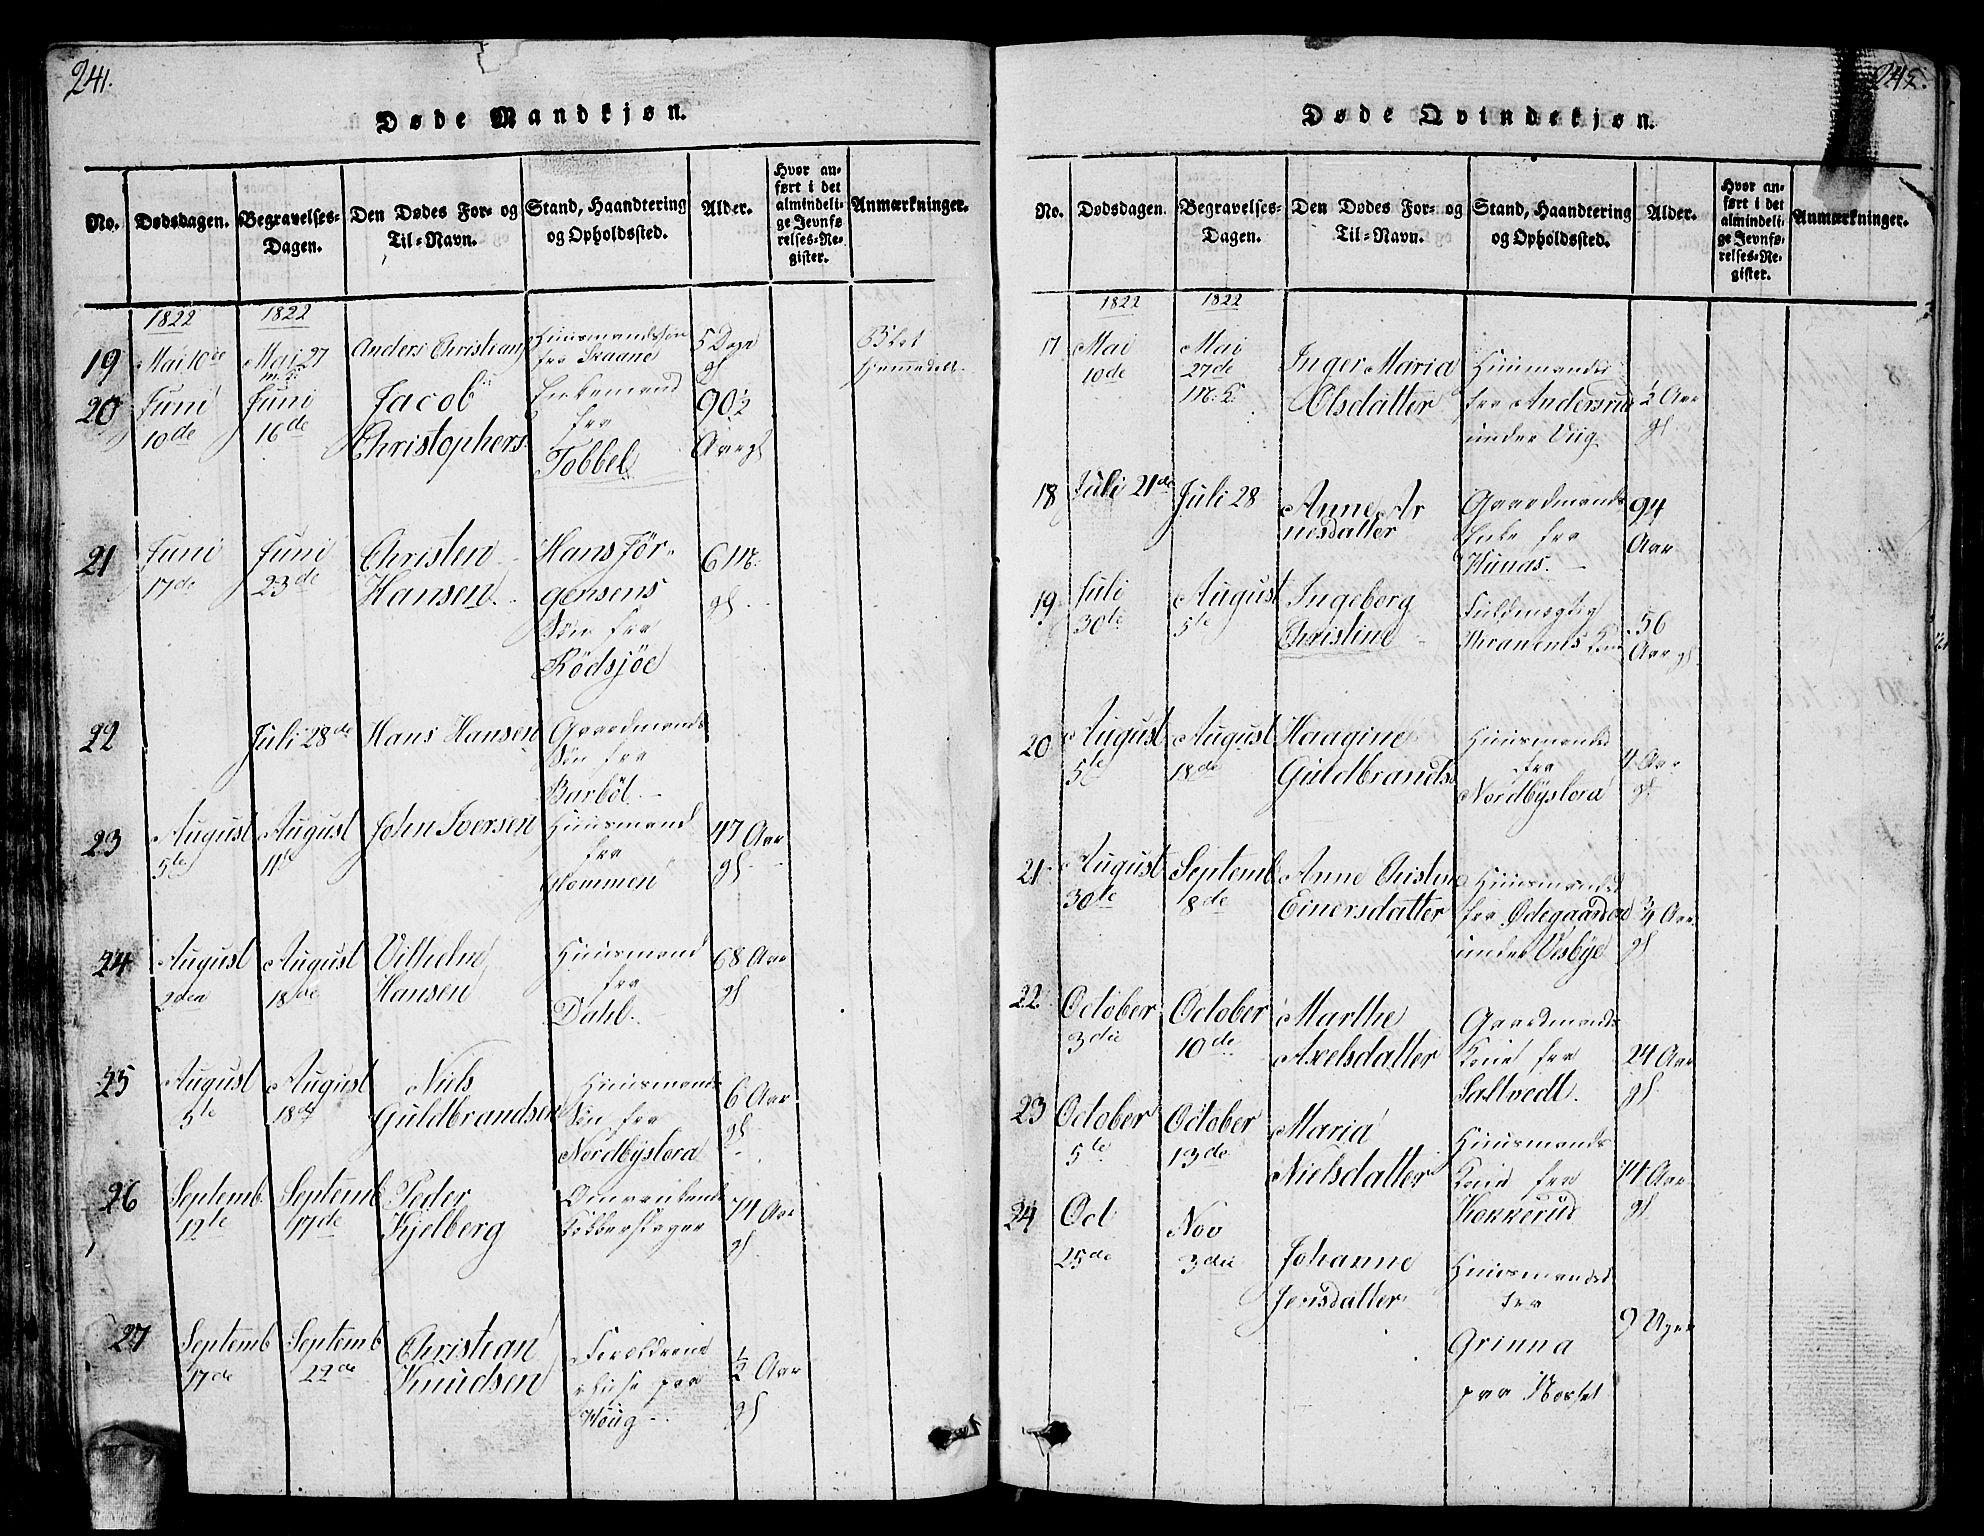 241.
Døde Mandkjøn.
No. Dødsdagen. Begravelses-Dagen. Den Dødes For- og Til-Navn. Stand, Haandtering og Opholdssted. Alder. Hvor anført i det almindelige Jevnførelses-Register. Anmærkninger.
1822 1822
19 Mai 10de Mai 27 Anders Christians Huusmandssøn 5 Dage
fra Skaane gl
20 Juni Juni Jacob Enkemand 90½
10de 16de Christophers fra Aar gl
Tobbel
21 Juni Juni Christen Hans Jör- 6 M.
17de 23de Hansen gensens gl
Søn fra
Rödsjöe
22 Juli 28de Hans Hansen Gaardmands
Søn fra
Barböl
23 August August John Iversen Huusmand 47 Aar
5te 11te fra gl
Glommen
24 August August Vilhelm Huusmand 68 Aar
2den 18de Hansen fra gl
Dahl
25 August August Niels Huusmands 6 Aar
5te 18de Guldbrandsen Søn fra gl
Nordbyslora
26 Septemb Septemb Peder Omvankende 74 Aar
12te 17de Kjelberg Kobberslager gl
27 Septemb Septemb Christian Forældrene ½ Aar
17de 22de Knudsen Huse paa gl
Houg
245.
Døde Qvindekjøn.
No. Dødsdagen. Begravelses-Dagen. Den Dødes For- og Til-Navn. Stand, Haandtering og Opholdssted. Alder. Hvor anført i det almindelige Jevnførelses-Register. Anmærkninger.
1822 1822
17 Mai Mai Inger Maria Huusmandsd
10de 27de Olsdatter fra Andersrud ½ Aar
under Viig gl
18 Juli 21de Juli 28 Anne Ar Gaardmands 94
nesdatter Enke fra Aar
Hunas
19 Juli August Ingeborg Fuldmægtig 56
30te 5te Christine Thranems Kone Aar gl
20 August August Haagine Huusmandsd 4 Aar
5te 18de Guldbrandsd fra gl
Nordbyslora
21 August Septemb Anne Christine Huusmandsd
30te 8de Einersdatter fra Ødegaarden ¾ Aar
under Visbye gl
22 October October Marthe Gaardmands
3die 10de Axelsdatter Kone fra 24 Aar
Saltvedt gl
23 October October Maria Huusmands
5te 13de Nielsdatter Kone fra 74 Aar
Kokkerud gl
24 Oct Nov Johanne Huusmandsd
25de 3die Jensdatter fra
Grinna 9 Uger
paa